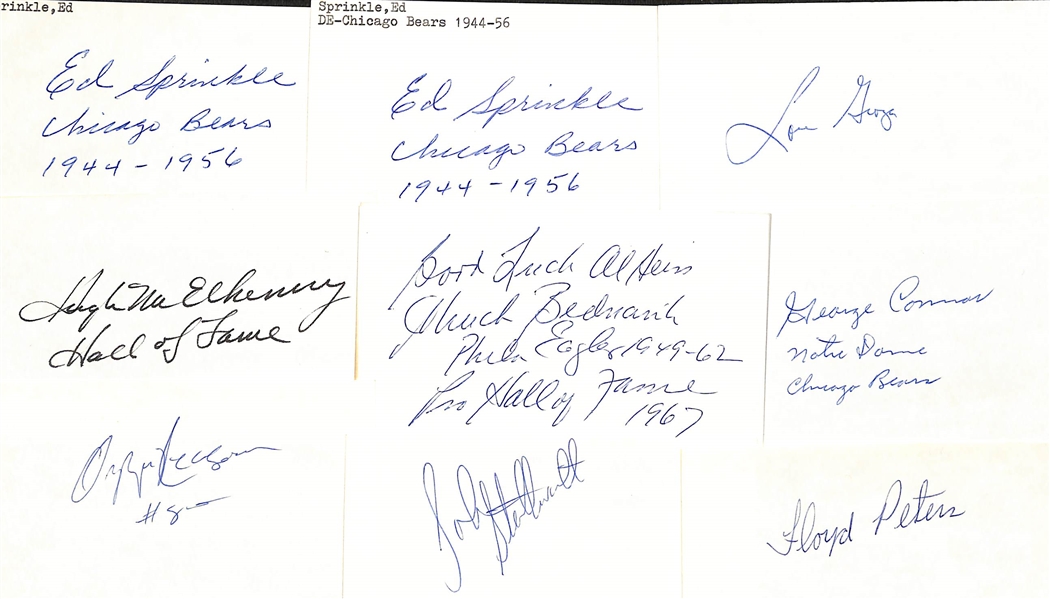 rinkle,Ed
Ed Sprinkle
Chicago Bears
1944-1956
Sprinkle,Ed
DE-Chicago Bears 1944-56
Ed Sprinkle
Chicago Bears
1944-1956
Lou Groza
Hugh McElhenny
Hall of Fame
Good Luck Al
Chuck Bednarik
Phila Eagles 1949-62
Pro Hall of Fame
1967
George Connor
Notre Dame
Chicago Bears
#8
Floyd Peters